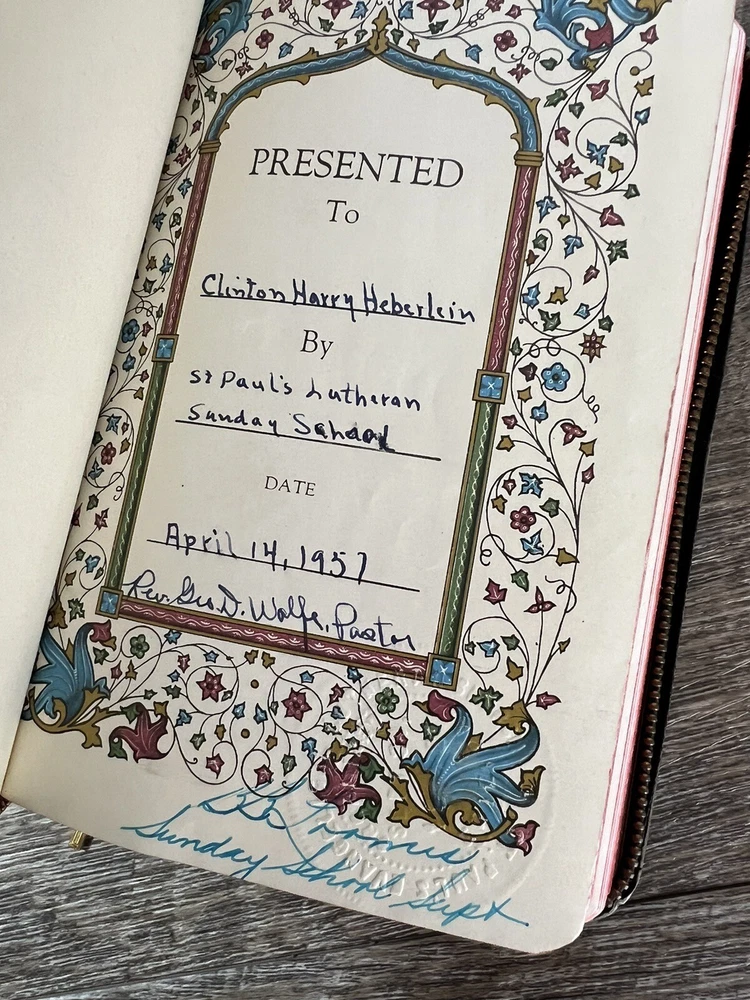 PRESENTED
To
Clinton Harry Heberlein
By
St Paul's Lutheran
Sunday School
DATE
April 14, 1957
Rev. Geo. D. Wolfe, Pastor
Thomas
Sunday School Supt